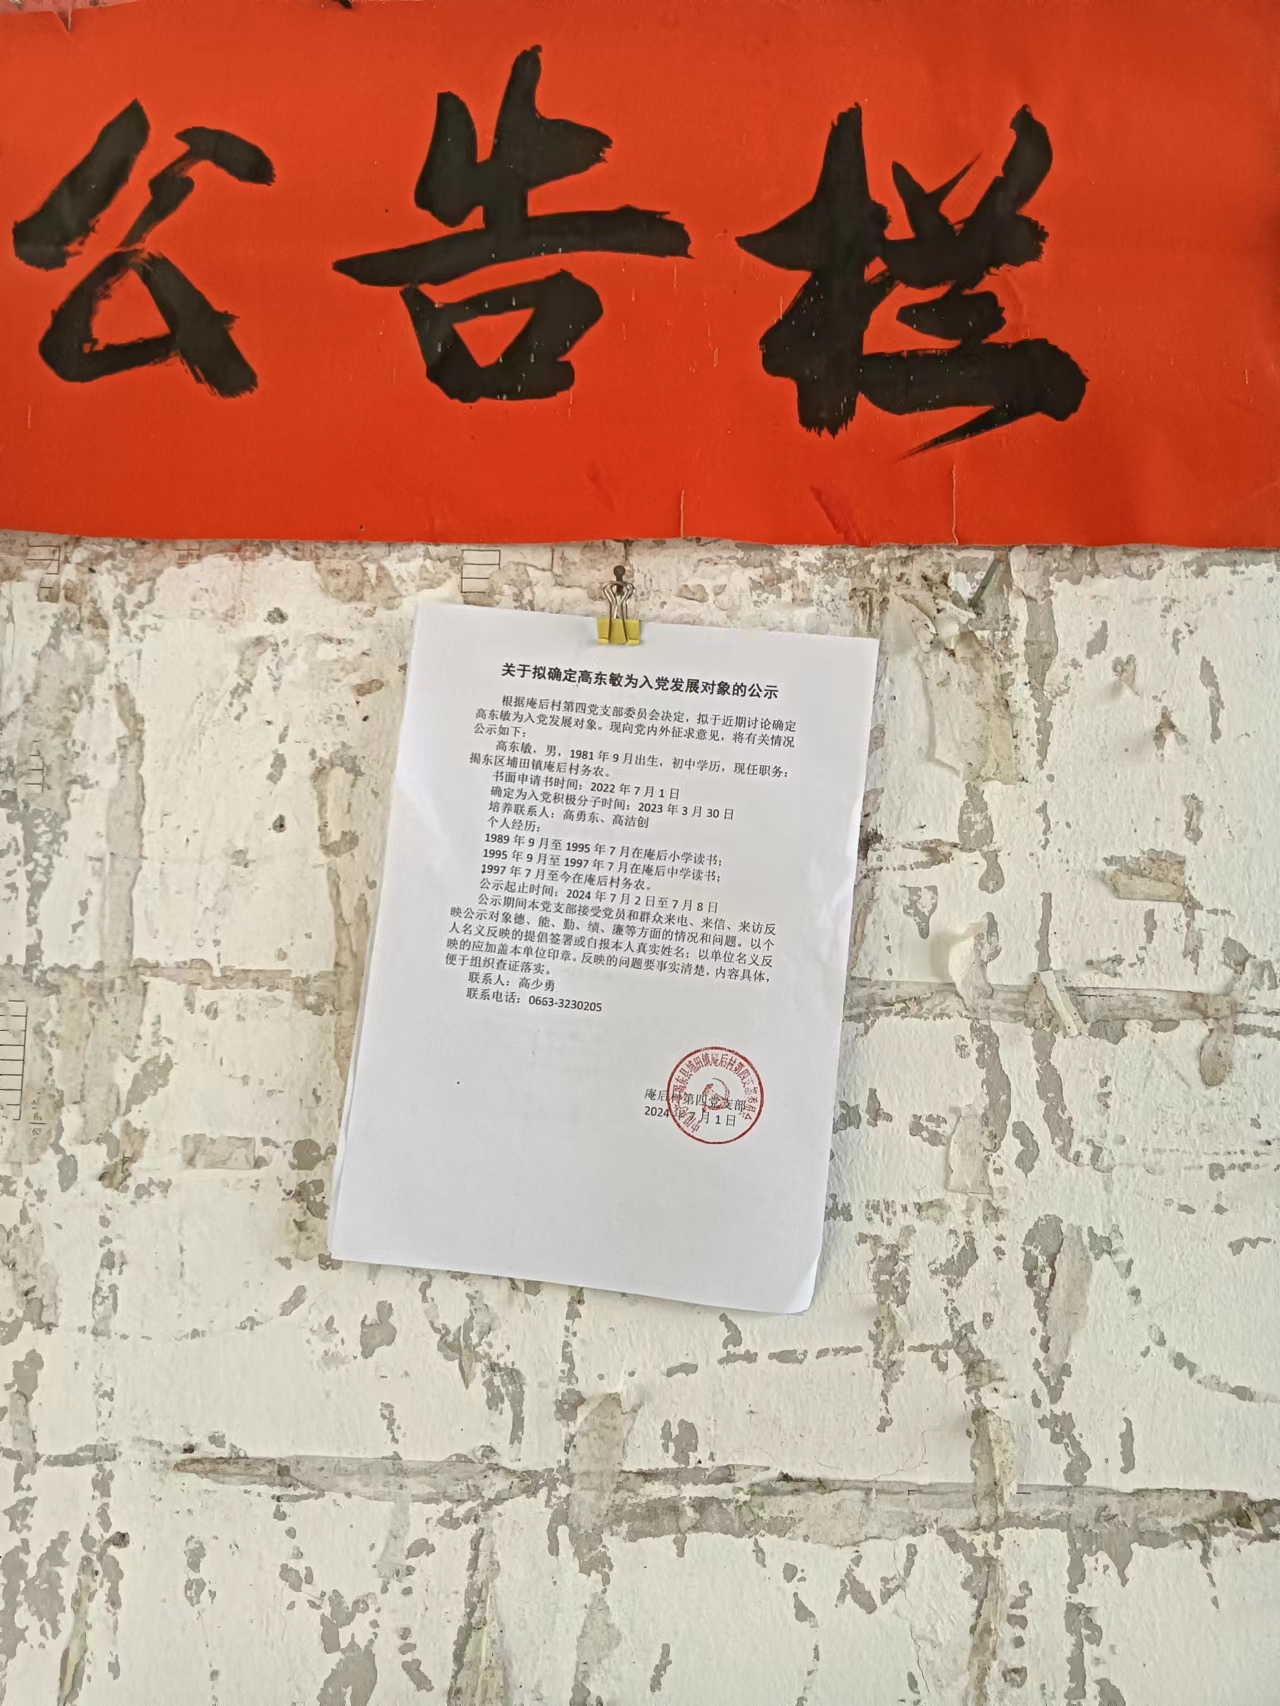 公告栏
关于拟确定高东敏为入党发展对象的公示
根据庵后村第四党支部委员会决定，拟于近期讨论确定
高东敏为入党发展对象。现向党内外征求意见，将有关情况
公示如下：
高东敏，男，1981年9月出生，初中学历，现任职务：
揭东区埔田镇庵后村务农。
书面申请书时间：2022年7月1日
确定为入党积极分子时间：2023年3月30日
培养联系人：高勇东、高洁创
个人经历：
1989年9月至1995年7月在庵后小学读书；
1995年9月至1997年7月在庵后中学读书；
1997年7月至今在庵后村务农。
公示起止时间：2024年7月2日至7月8日
公示期间本党支部接受党员和群众来电、来信、来访反
映公示对象德、能、勤、绩、廉等方面的情况和问题。以个
人名义反映的提倡签署或自报本人真实姓名；以单位名义反
映的应加盖本单位印章。反映的问题要事实清楚，内容具体，
便于组织查证落实。
联系人：高少勇
联系电话：0663-3230205
庵后村第四党支部
2024年7月1日